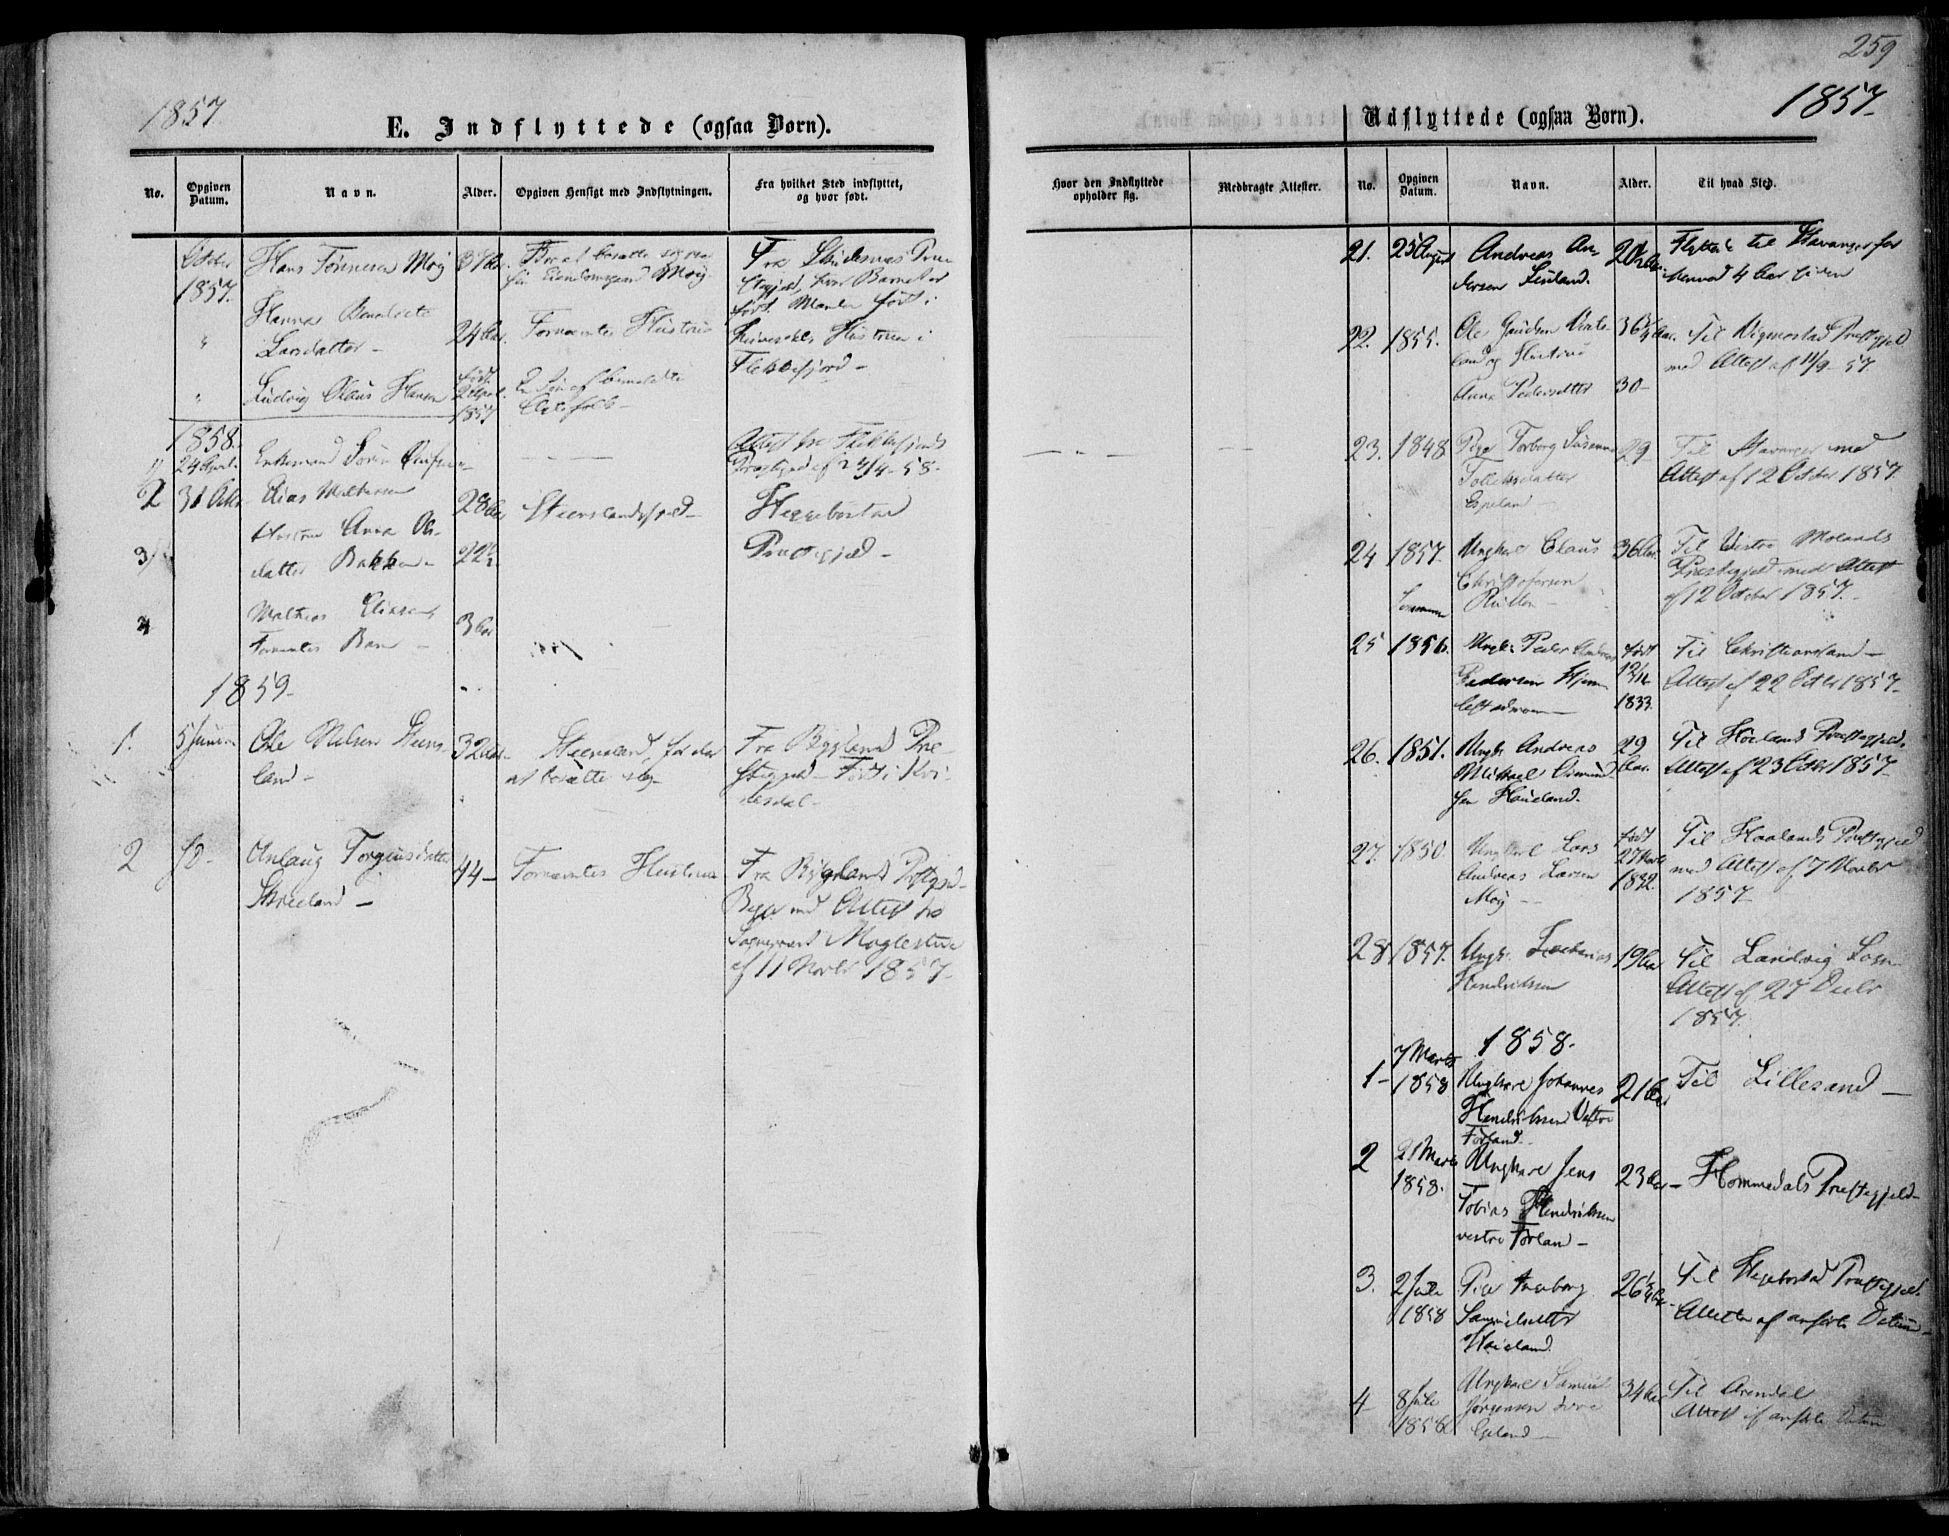 259
1857
1857.
E. Indflyttede (ogsaa Børn).
No.
Opgiven Datum.
Navn.
Alder.
Opgiven Hensigt med Indflytningen.
Fra hvilket Sted indflyttet,
og hvor født.
October
1857.
Hans Tønnesen Møy
37 Aar.
For at bosætte sig paa
sin Eiendomsgaard Møy
Fra Skudesnæs Præ-
stegjeld, hvor Barnet er
født. Manden født i
Hustruen i
Flekkefjord -
"
Hanna Benedicte
Larsdatter -
24 Aar.
Fornævntes Hustrue
"
Ludvig Olaus Hansen
født
2 April
1857
En Søn af bemeldte
Ægtefolk -
1858.
1
24 April
Enkemand Søren
Attest fra Flekkefjords
Præstegjeld af 24/4-58-
2
31 Octbr
Elias Mathisen
28 Aar
Steenslandsfjeld -
Heggebostad
Præstegjeld -
3
Hustru Anna Ols-
datter Bakken -
22 1/2
4
Mathias Eliassen,
Fornævntes Barn -
3 Aar
1859-
1.
5 Januar
Ole Nilsen Steens-
land -
32 Aar.
Steensland, for der
at bosætte sig -
Fra Bygland Præ-
stegjeld - Født i Kvi-
tesdal -
2
do-
Anlaug Torgiusdatter
Skreeland -
44 -
Fornævntes Hustrue
Fra Byglands Præstegjeld -
Begge med Attest fra
Sognepræst Moglestue
af 11 Novbr 1857-
Hvor den Indflyttede
opholder sig.
Medbragte Attester.
Udflyttede (ogsaa Børn).
No.
Opgiven Datum.
Navn.
Alder.
Til hvad Sted.
21.
25 August
Andreas An-
dersen
Flyttede til Stavanger for
henved 4 Aar siden
22.
1855.
Ole
land og Hustrue
Anna Pedersdatter
36 3/4 Aar.
30 -
Til Vigmostad Præstegjeld
med Attest af 11/9-57
23.
1848
Pige Torborg Susanne
Tollefsdatter
Espeland -
29
Til Stavanger med
Attest af 12 October 1857
24
1857
Sommeren
Ungkarl Claus
Christophersen
36 Aar.
Til Vestre Molands
Præstegjeld med Attest
af 12 October 1857 -
25
1856.
Ungk. Peder Andreas
Pedersen
født
12/12
1833.
Til Christiansand -
Attest af 22 Octbr 1857 -
26.
1851.
Ungk. Andreas
Michael Osmund-
sen Haueland.
29
Aar.
Til Hølands Præstegjeld.
Attest af 23 Octbr 1857
27.
1850.
Ungkarl Lars
Andreas Larsen
Møy -
født
1832.
Til Haalands Præstegjeld
med Attest af 7 Novbr
1857
28
1857.
Ungk. Zacharias
Hendriksen
19 Aar
Til Landvig Sogn
Attest af 27 Decbr
1857.
1858.
1 -
7 Marts
1858
Ungkarl Johannes
Hendriksen Vestre
Førland -
21 Aar
Til Lillesand -
2
21 Marts
1858.
Ungkarl Jens
Tobias Hendriksen
vestre Førland -
23 Aar -
Hommedals Præstegjeld -
3.
2 Juli
1858
Pige Ingeborg
Samuelsdatter
Høieland.
26 1/4 Aar
Til Hegebostad Præstegjeld.
Attest af anførte Datum -
4 -
8 Juli
1858
Ungkarl Samuel
Jørgensen
Egeland -
34 Aar
Til Arendal
Attest af anførte Datum